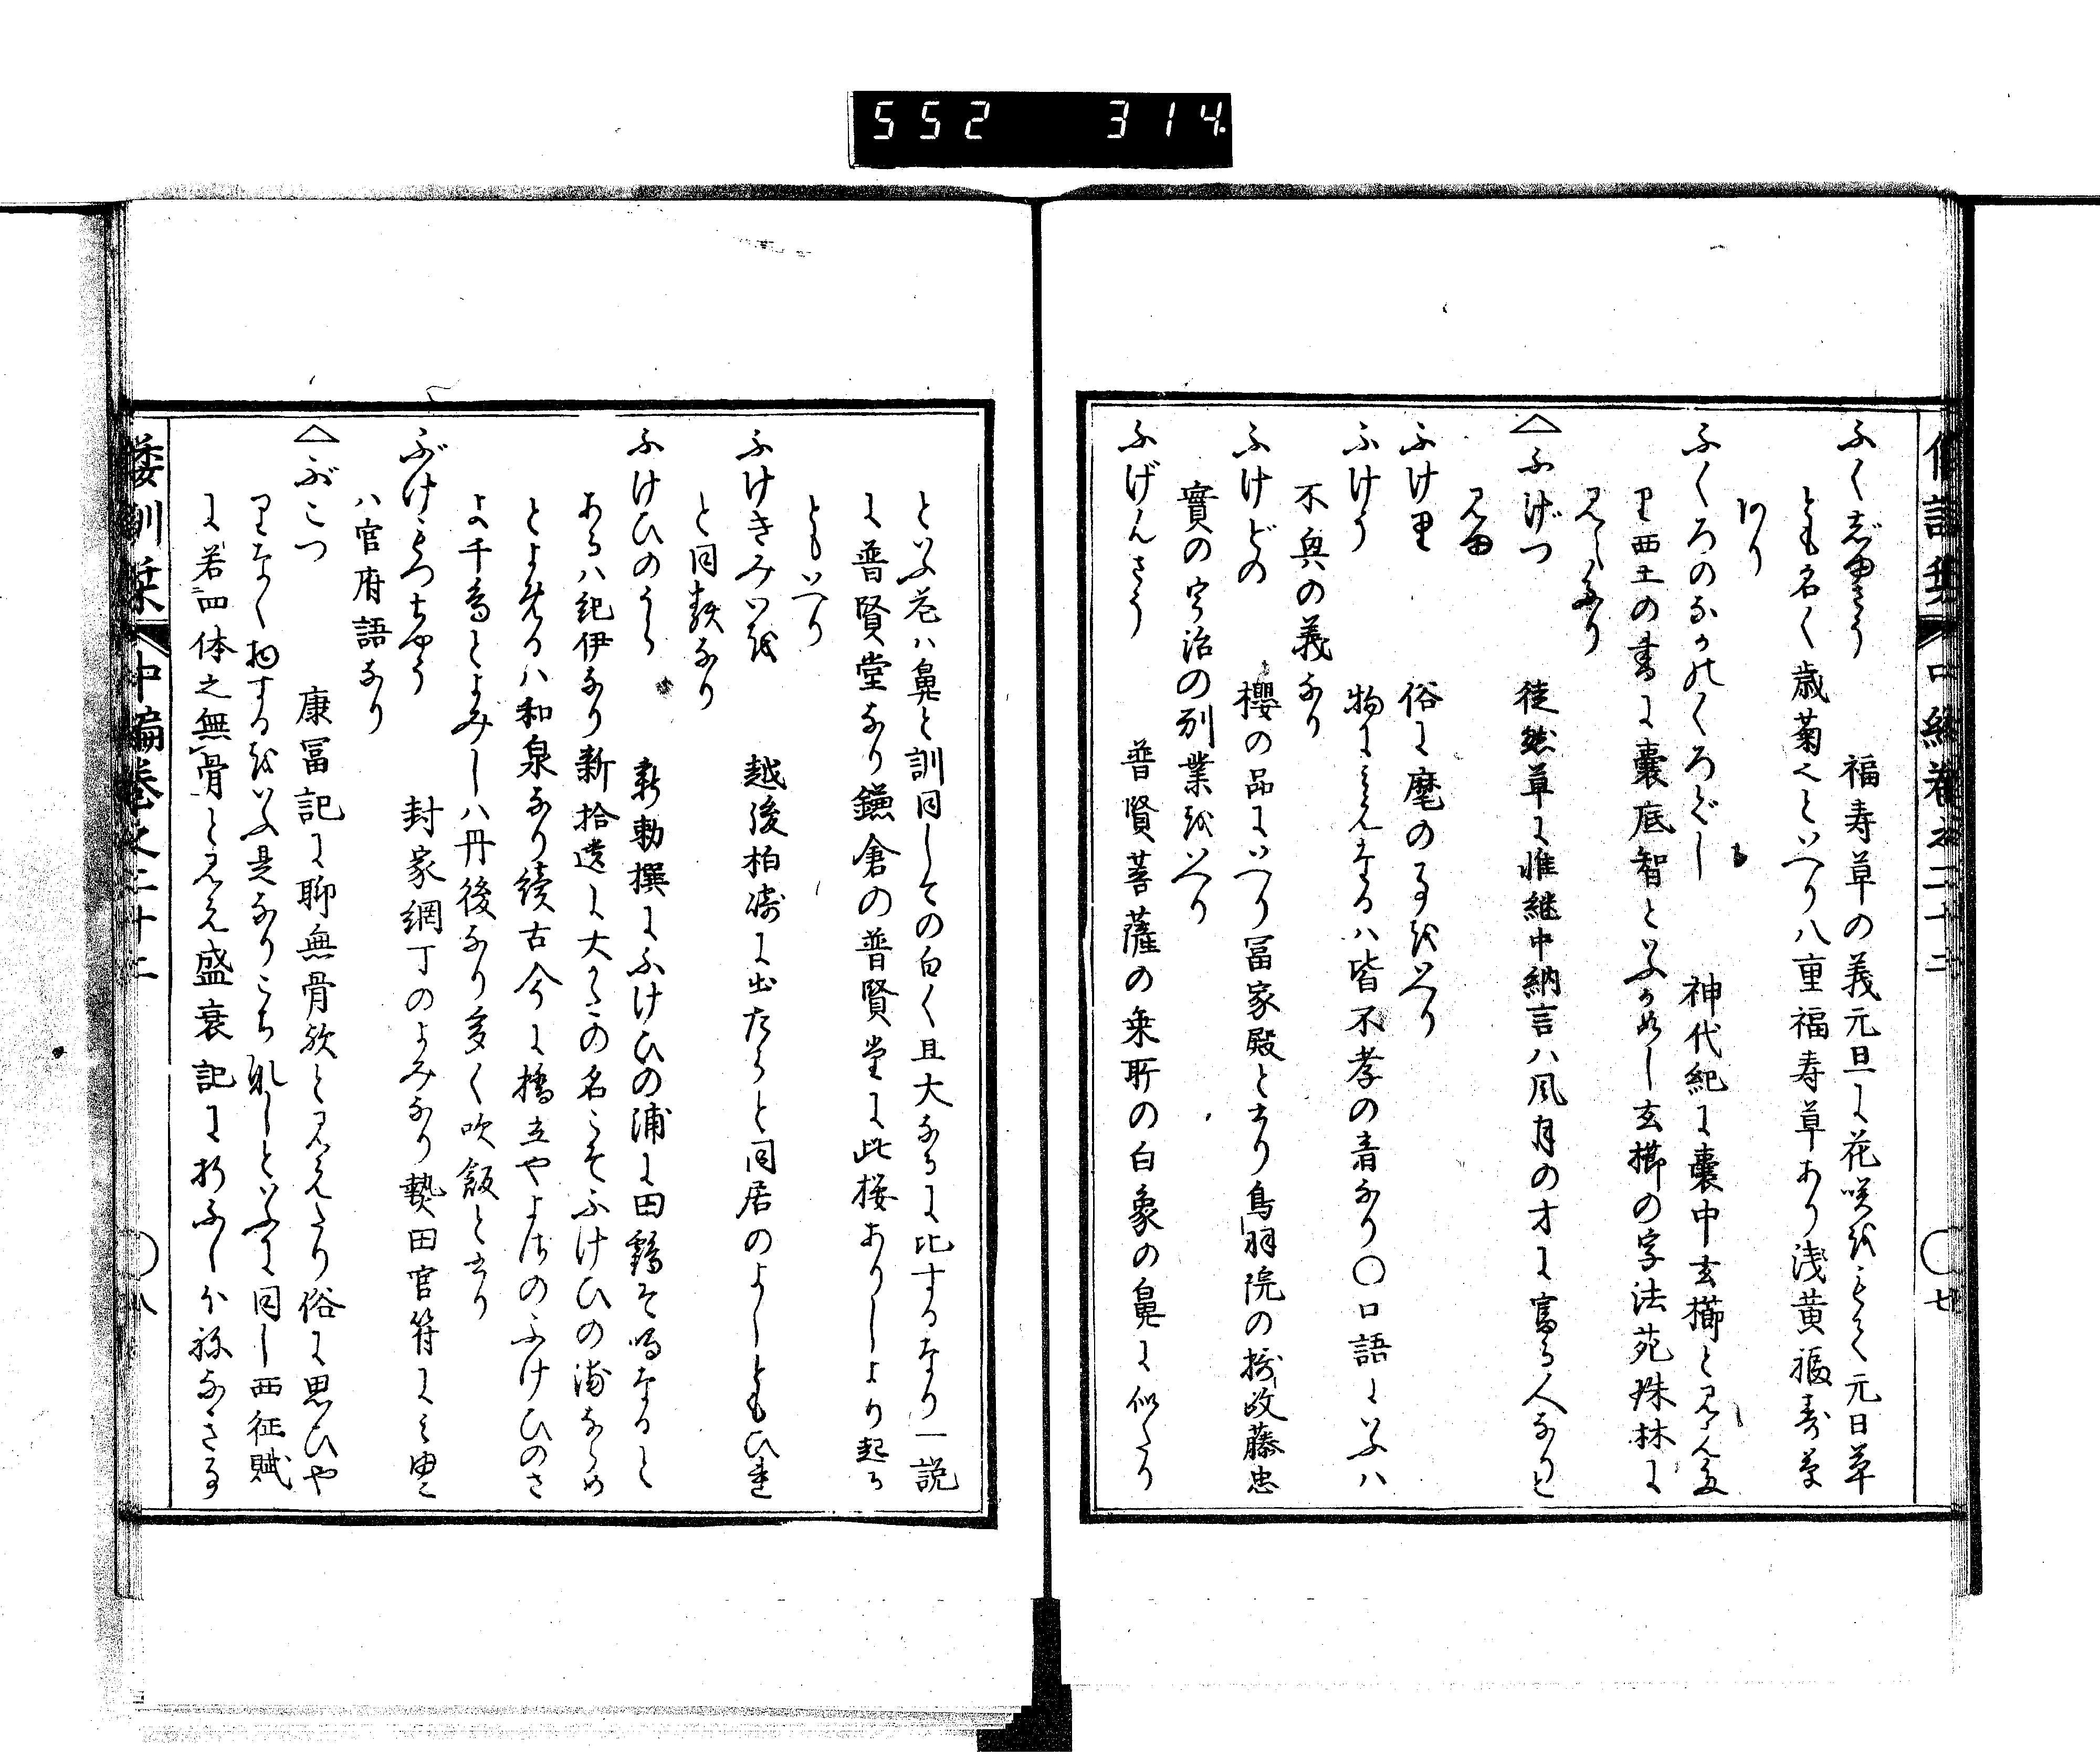 552 314
ふくじゆさう 福寿草の義元旦に花咲をもて元日草
とも名く歳菊へといへり八重福寿草あり浅黄福寿草
あり
ふくろのなかのくろぐし 神代紀に嚢中玄櫛と見えた
り西土の書に嚢底智といふかめし玄櫛の字法苑珠林に
見えたり
△ふげつ 徒然草に惟継中納言ハ風月の才に富る人なりと
見ゆ
ふけ里 俗に麾の事をいへり
ふけう 物にミえたるハ皆不孝の音なり〇口語にいふハ
不興の義なり
ふけどの 櫻の品にいへり冨家殿と云り鳥羽院の摂政藤忠
實の宇治の別業をいへり
ふげんざう 普賢菩薩の乗所の白象の鼻に似たり
といふ花ハ鼻と訓同しその白く且大なるに比するなり一説
に普賢堂なり鎌倉の普賢堂に此桜ありしより起る
ともいへり
ふけきみいを 越後柏崎に出たらと同居のよしともひれ
と同類なり
ふけひのうら 新勅撰にふけひの浦に田鶴そ鳴なると
あるハ紀伊なり新拾遺に大かたの名こそふけひの浦ならめ
とよめるハ和泉なり續古今に橋立やよさのふけひのさ
よ千鳥とよみしハ丹後なり多く吹飯と云り
ぶけもつちやう 封家網丁のよみなり勢田官符にミゆ里
ハ官府語なり
△ぶこつ 康冨記に聊無骨歟と見えたり俗に思ひや
りなく物するをいふ是なりこち那しといふに同し西征賦
に若四体之無骨と見え盛衰記に折ふしか祢なさる
倭訓栞 中編巻之二十二 〇八